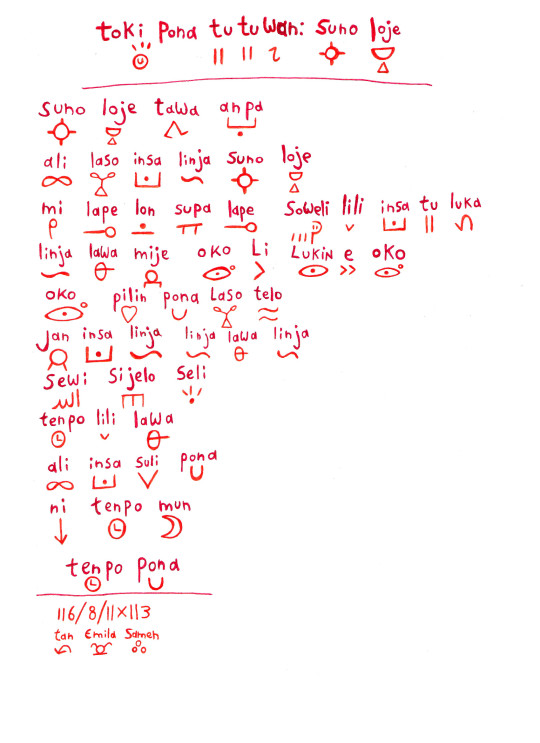 toki pona tu tu wan: suno loje
suno loje tawa anpa
ali laso insa linja suno loje
mi lape lon supa lape soweli lili insa tu luka
linja lawa mije oko Li LukiN e oko
oko pilin pona Laso telo
Jan insa linja linja lawa linja
Sewi Sijelo Seli
tenpo lili lawa
ali insa suli pona
ni tenpo mun
tenpo pona
116/8/11×113
tan Emila Sameh